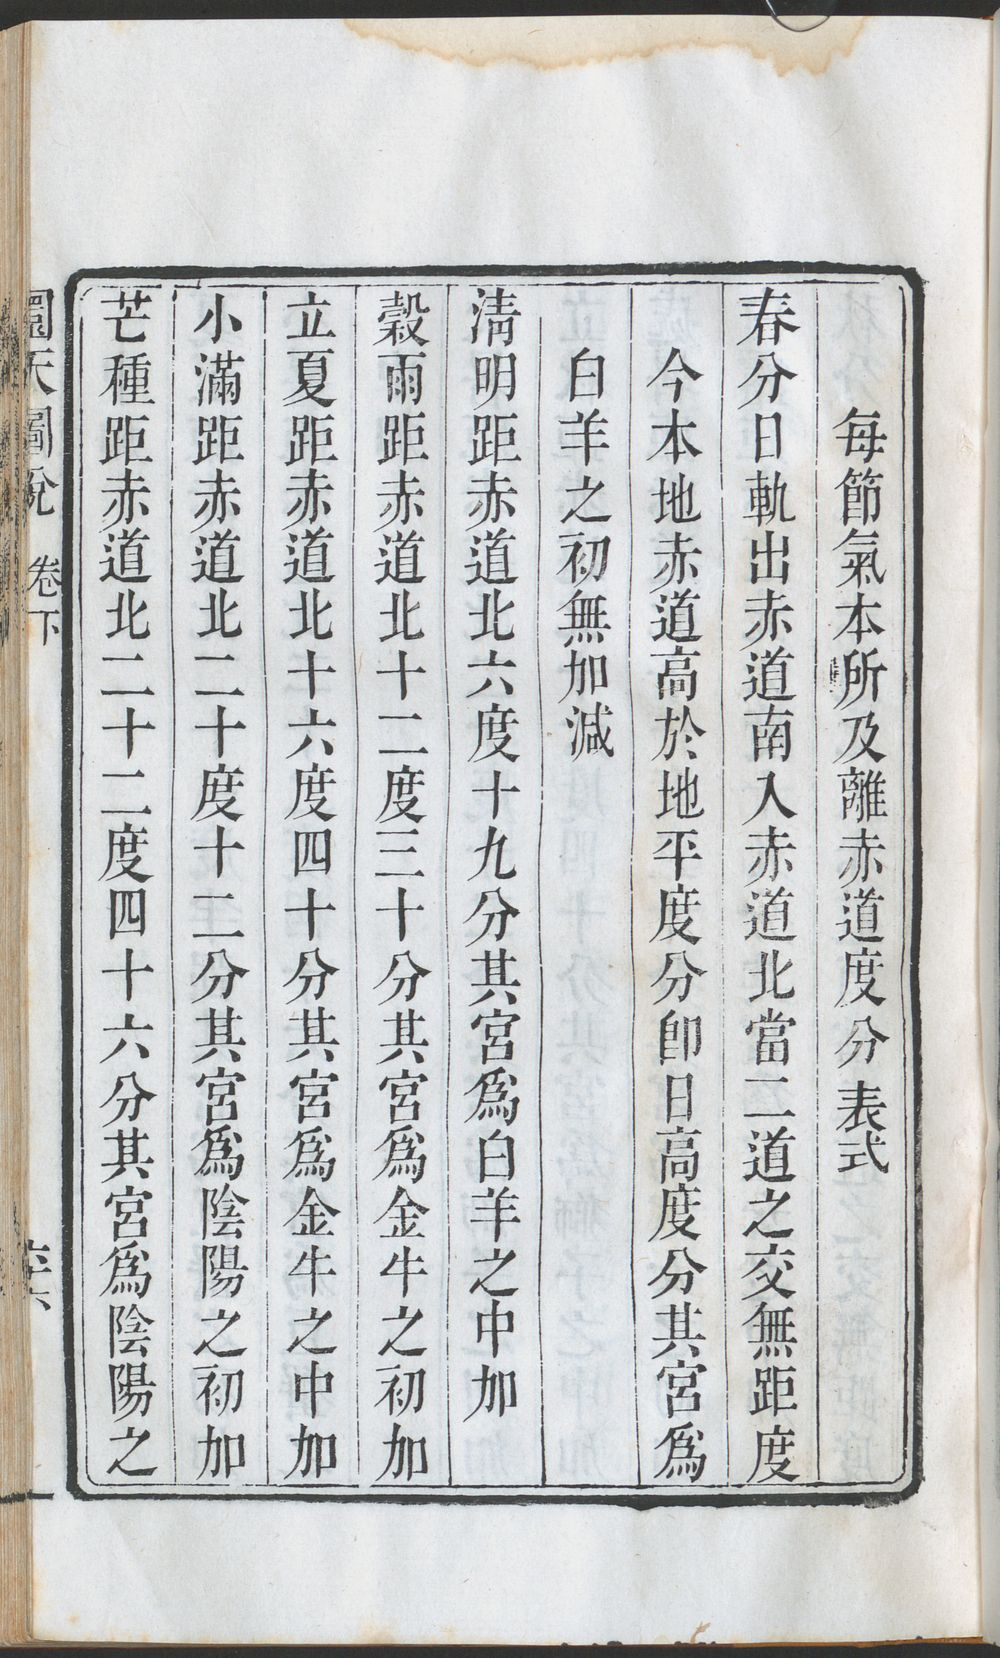 每節氣本所及離赤道度分表式
春分日軌出赤道南入赤道北當二道之交無距度
今本地赤道高於地平度分卽日高度分其宮爲
白羊之初無加減
淸明距赤道北六度十九分其宮爲白羊之中加
穀雨距赤道北十二度三十分其宮爲金牛之初加
立夏距赤道北十六度四十分其宮爲金牛之中加
小滿距赤道北二十度十二分其宮爲陰陽之初加
芒種距赤道北二十二度四十六分其宮爲陰陽之
圜天圖說 卷下